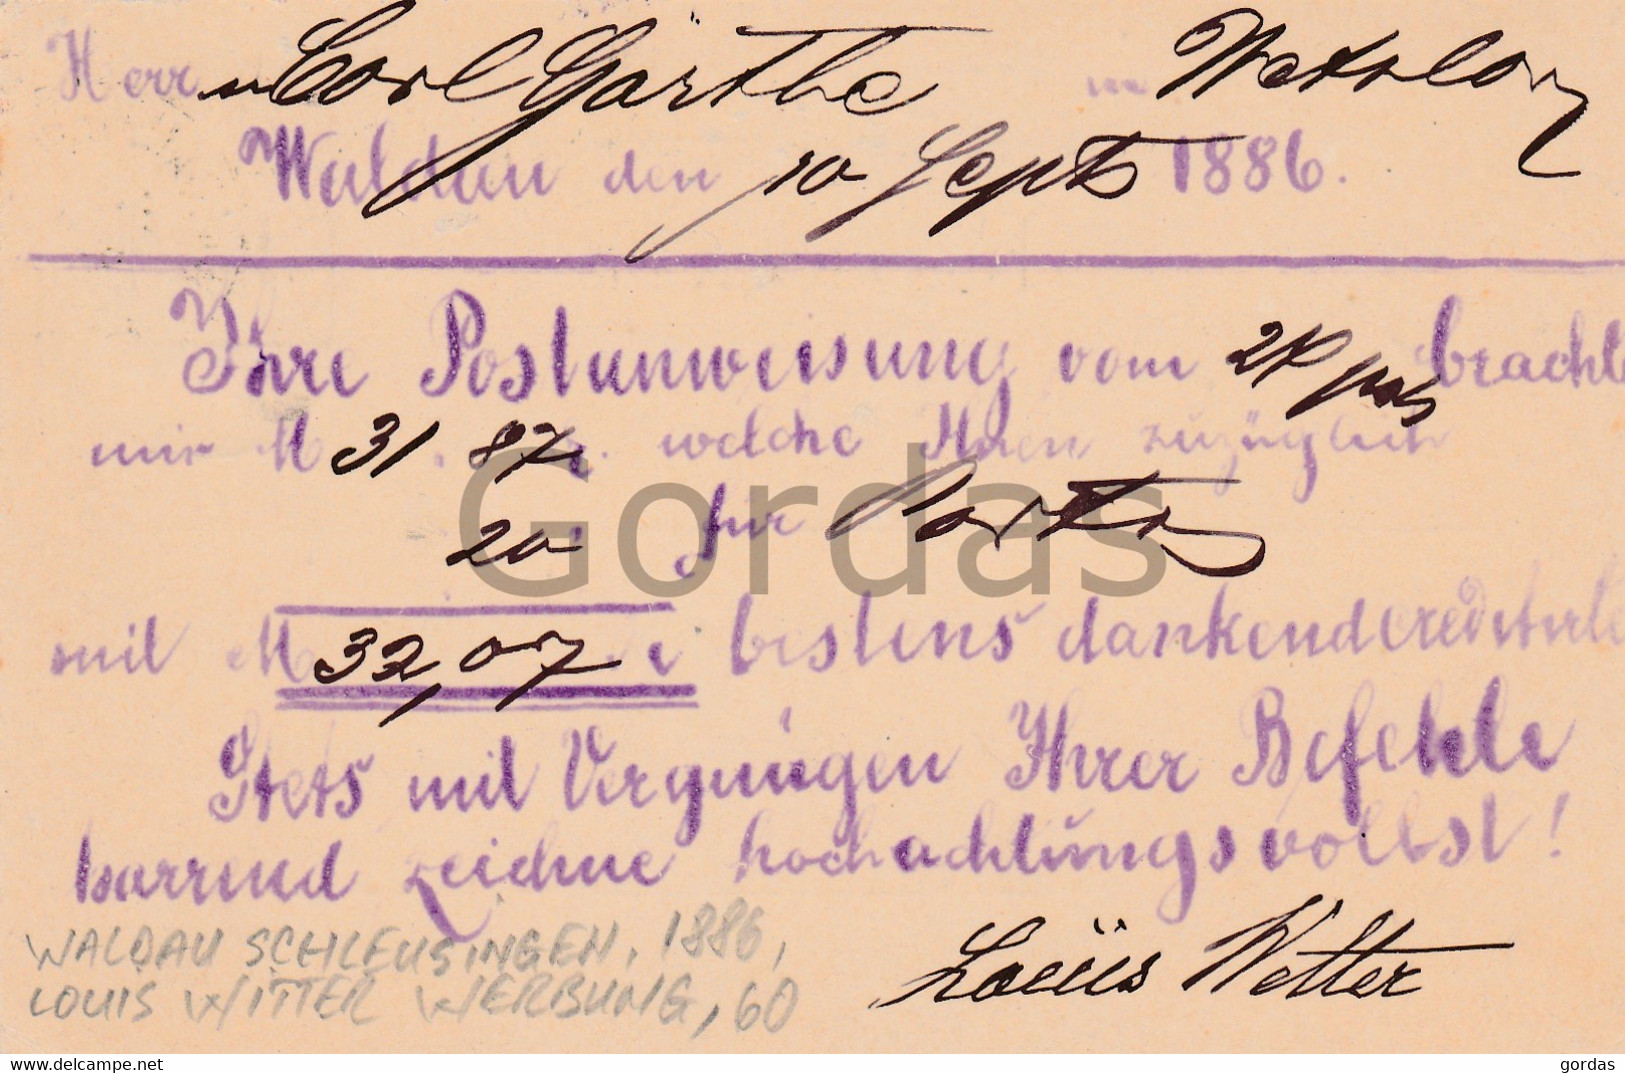 Herrn Carl Garthe in Wetzlar
Waldau den 10 Sept 1886.
Ihre Postanweisung vom brachte
mir M 31. 87 welche Ihnen zuzüglich
20 für Porto
mit M 32,07 bestens dankend creditirte
Stets mit Vergnügen Ihrer Befehle
harrend zeichne hochachtungsvollst!
Louis Witter
WALDAU SCHLEUSINGEN, 1886,
LOUIS WITTER WERBUNG, 60
Gordas
www.delcampe.net
gordas